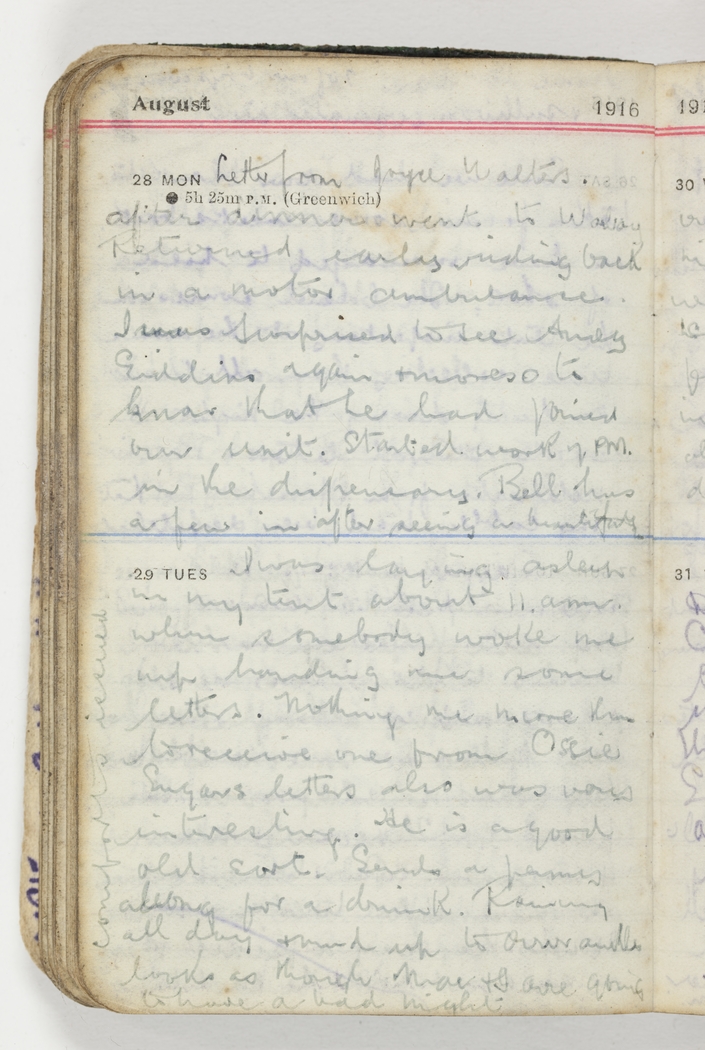 August 1916
28 MON Letter from Joyce Walters.
● 5h 25m P.M. (Greenwich)
after dinner went to
Returned early riding back
in a motor ambulance.
I was surprised to see Andy
Giddins again + more so to
hear that he had joined
our unit. Started work 7 PM.
in the dispensary. Bell has
a few in after seeing a
29 TUES I was laying asleep
in my tent about 11. am.
when somebody woke me
up handing me some
letters. Nothing me more than
to receive one from Ossie
Sugars letters also was very
interesting. He is a good
old sort. Sends a penny
along for a drink. Raining
all day mud up to our ankles
looks as though Mac + I are going
to have a bad night.
comforts received.
191
30 W
31